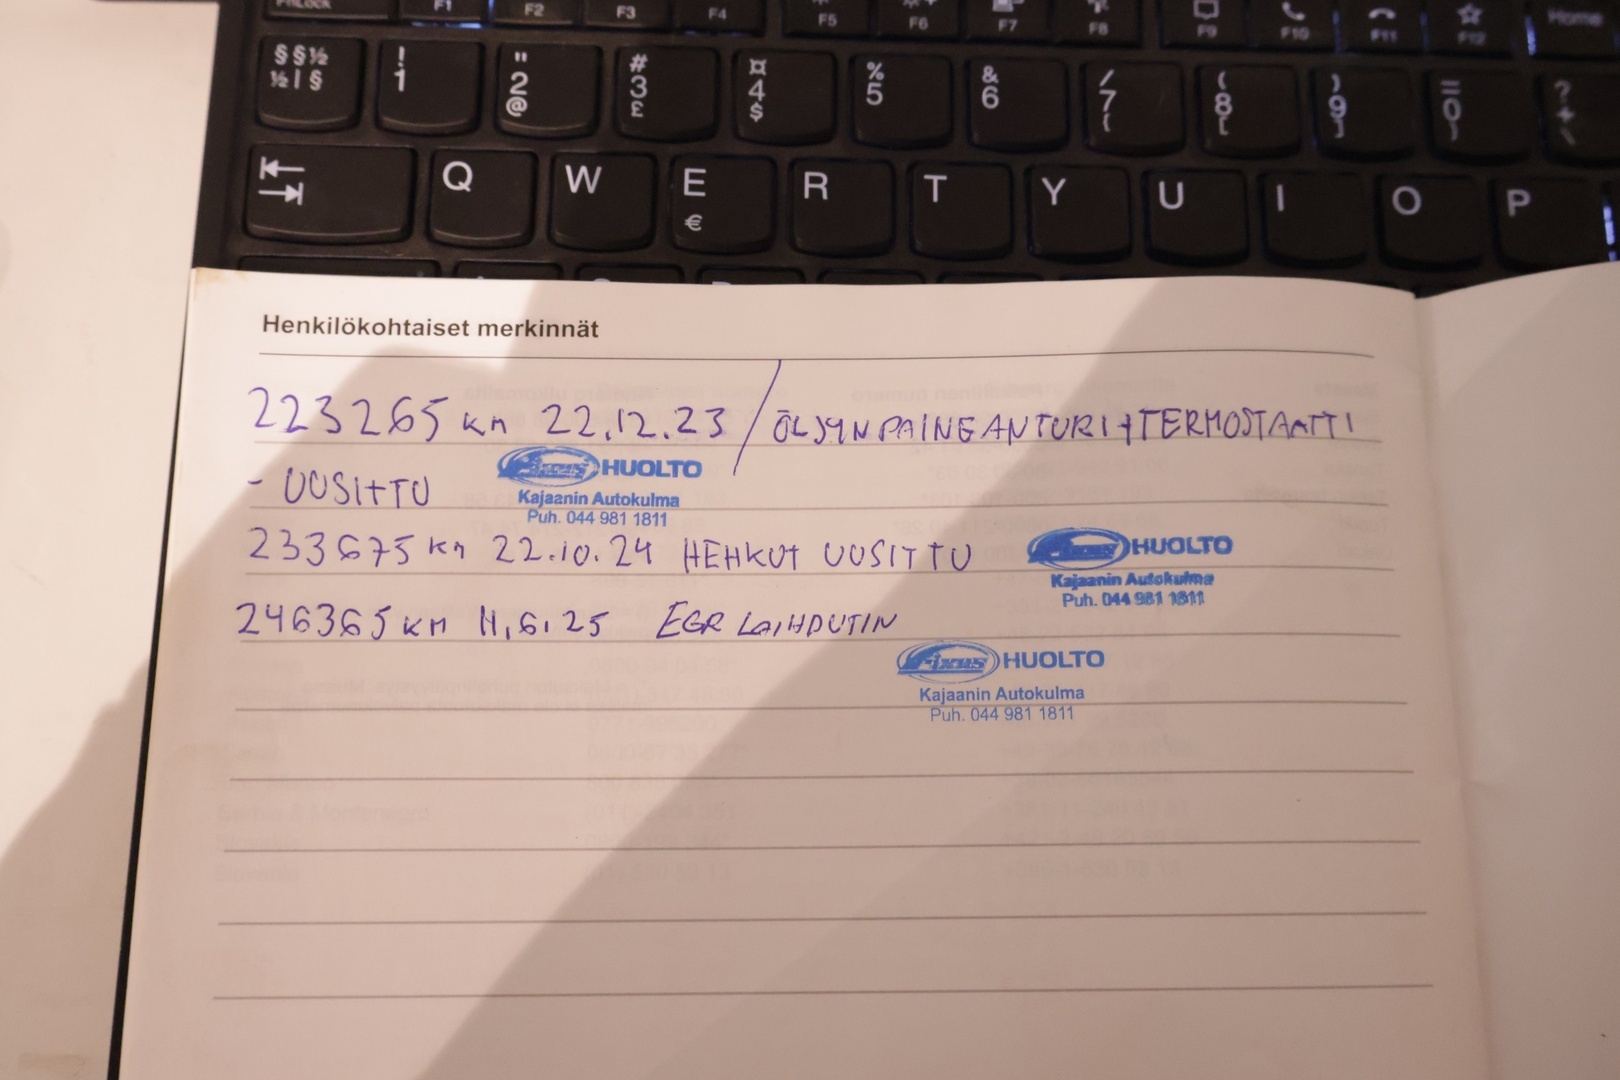 FnLock F1 F2 F3 F4 F5 F6 F7 F8 F9 F10 F11 F12 Home
§ § ½ ! " # ¤ % & / ( ) = ?
½ | § 1 2 3 4 5 6 7 8 9 0 +
@ £ $ { [ ] } \
Q W E R T Y U I O P
€
Henkilökohtaiset merkinnät
223265 km 22.12.23 / ÖLJYNPAINEANTURI+TERMOSTAATTI
- UUSITTU
Fixus HUOLTO
Kajaanin Autokulma
Puh. 044 981 1811
233675 km 22.10.24 HEHKUT UUSITTU
Fixus HUOLTO
Kajaanin Autokulma
Puh. 044 981 1811
246365 KM 11.6.25 EGR LAIHDUTIN
Fixus HUOLTO
Kajaanin Autokulma
Puh. 044 981 1811